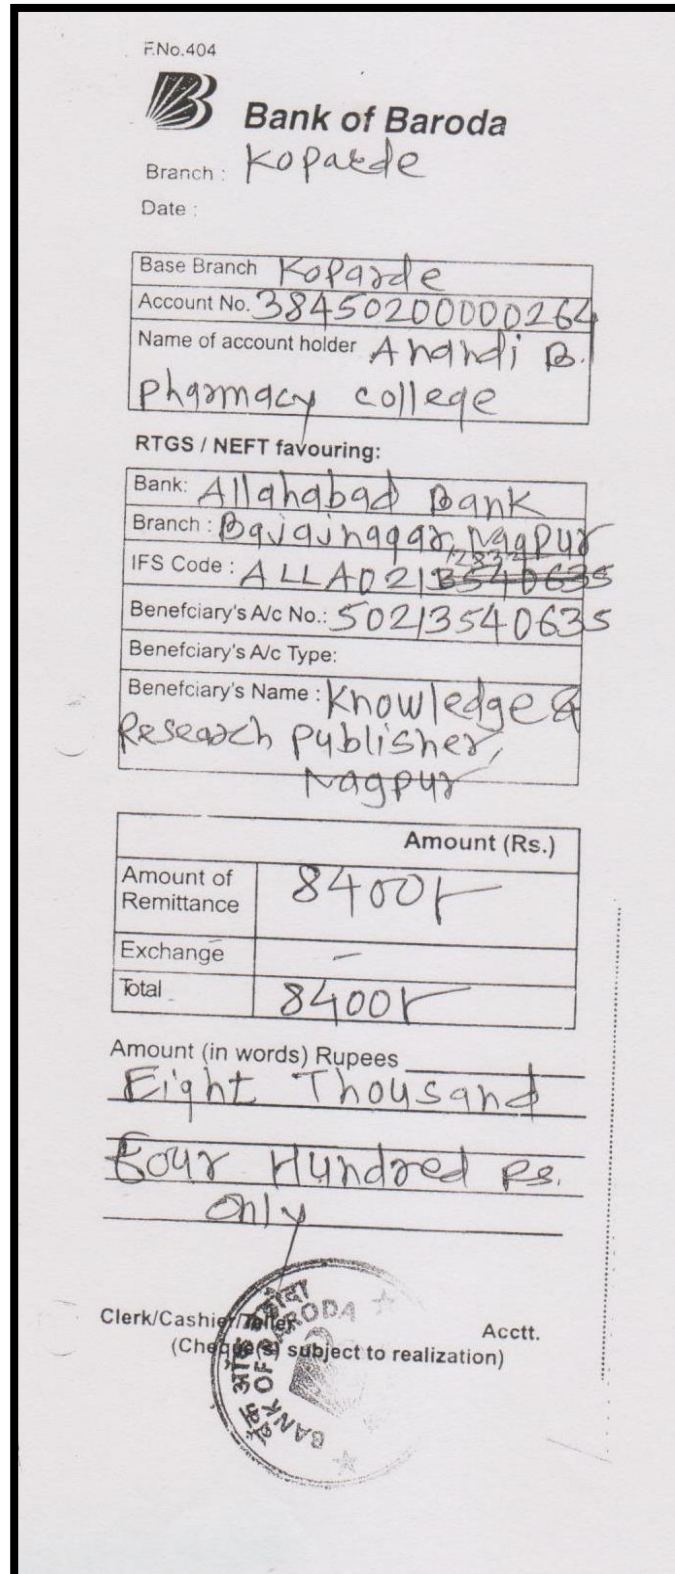 F.No.404
Bank of Baroda
Branch : Koparde
Date :
Base Branch Koparde
Account No. 38450200000264
Name of account holder Anandi B.
pharmacy college
RTGS / NEFT favouring:
Bank: Allahabad Bank
Branch : Bajajnagar, Nagpur
IFS Code : ALLA021
Benefciary's A/c No.: 50213540635
Benefciary's A/c Type:
Benefciary's Name : Knowledge &
Research Publisher,
Nagpur
Amount (Rs.)
Amount of
Remittance 8400/-
Exchange -
Total 8400/-
Amount (in words) Rupees
Eight Thousand
Four Hundred Rs.
Only
Clerk/Cashier/Teller
Acctt.
(Cheque(s) subject to realization)
बैंक ऑफ़ बड़ौदा
BANK OF BARODA